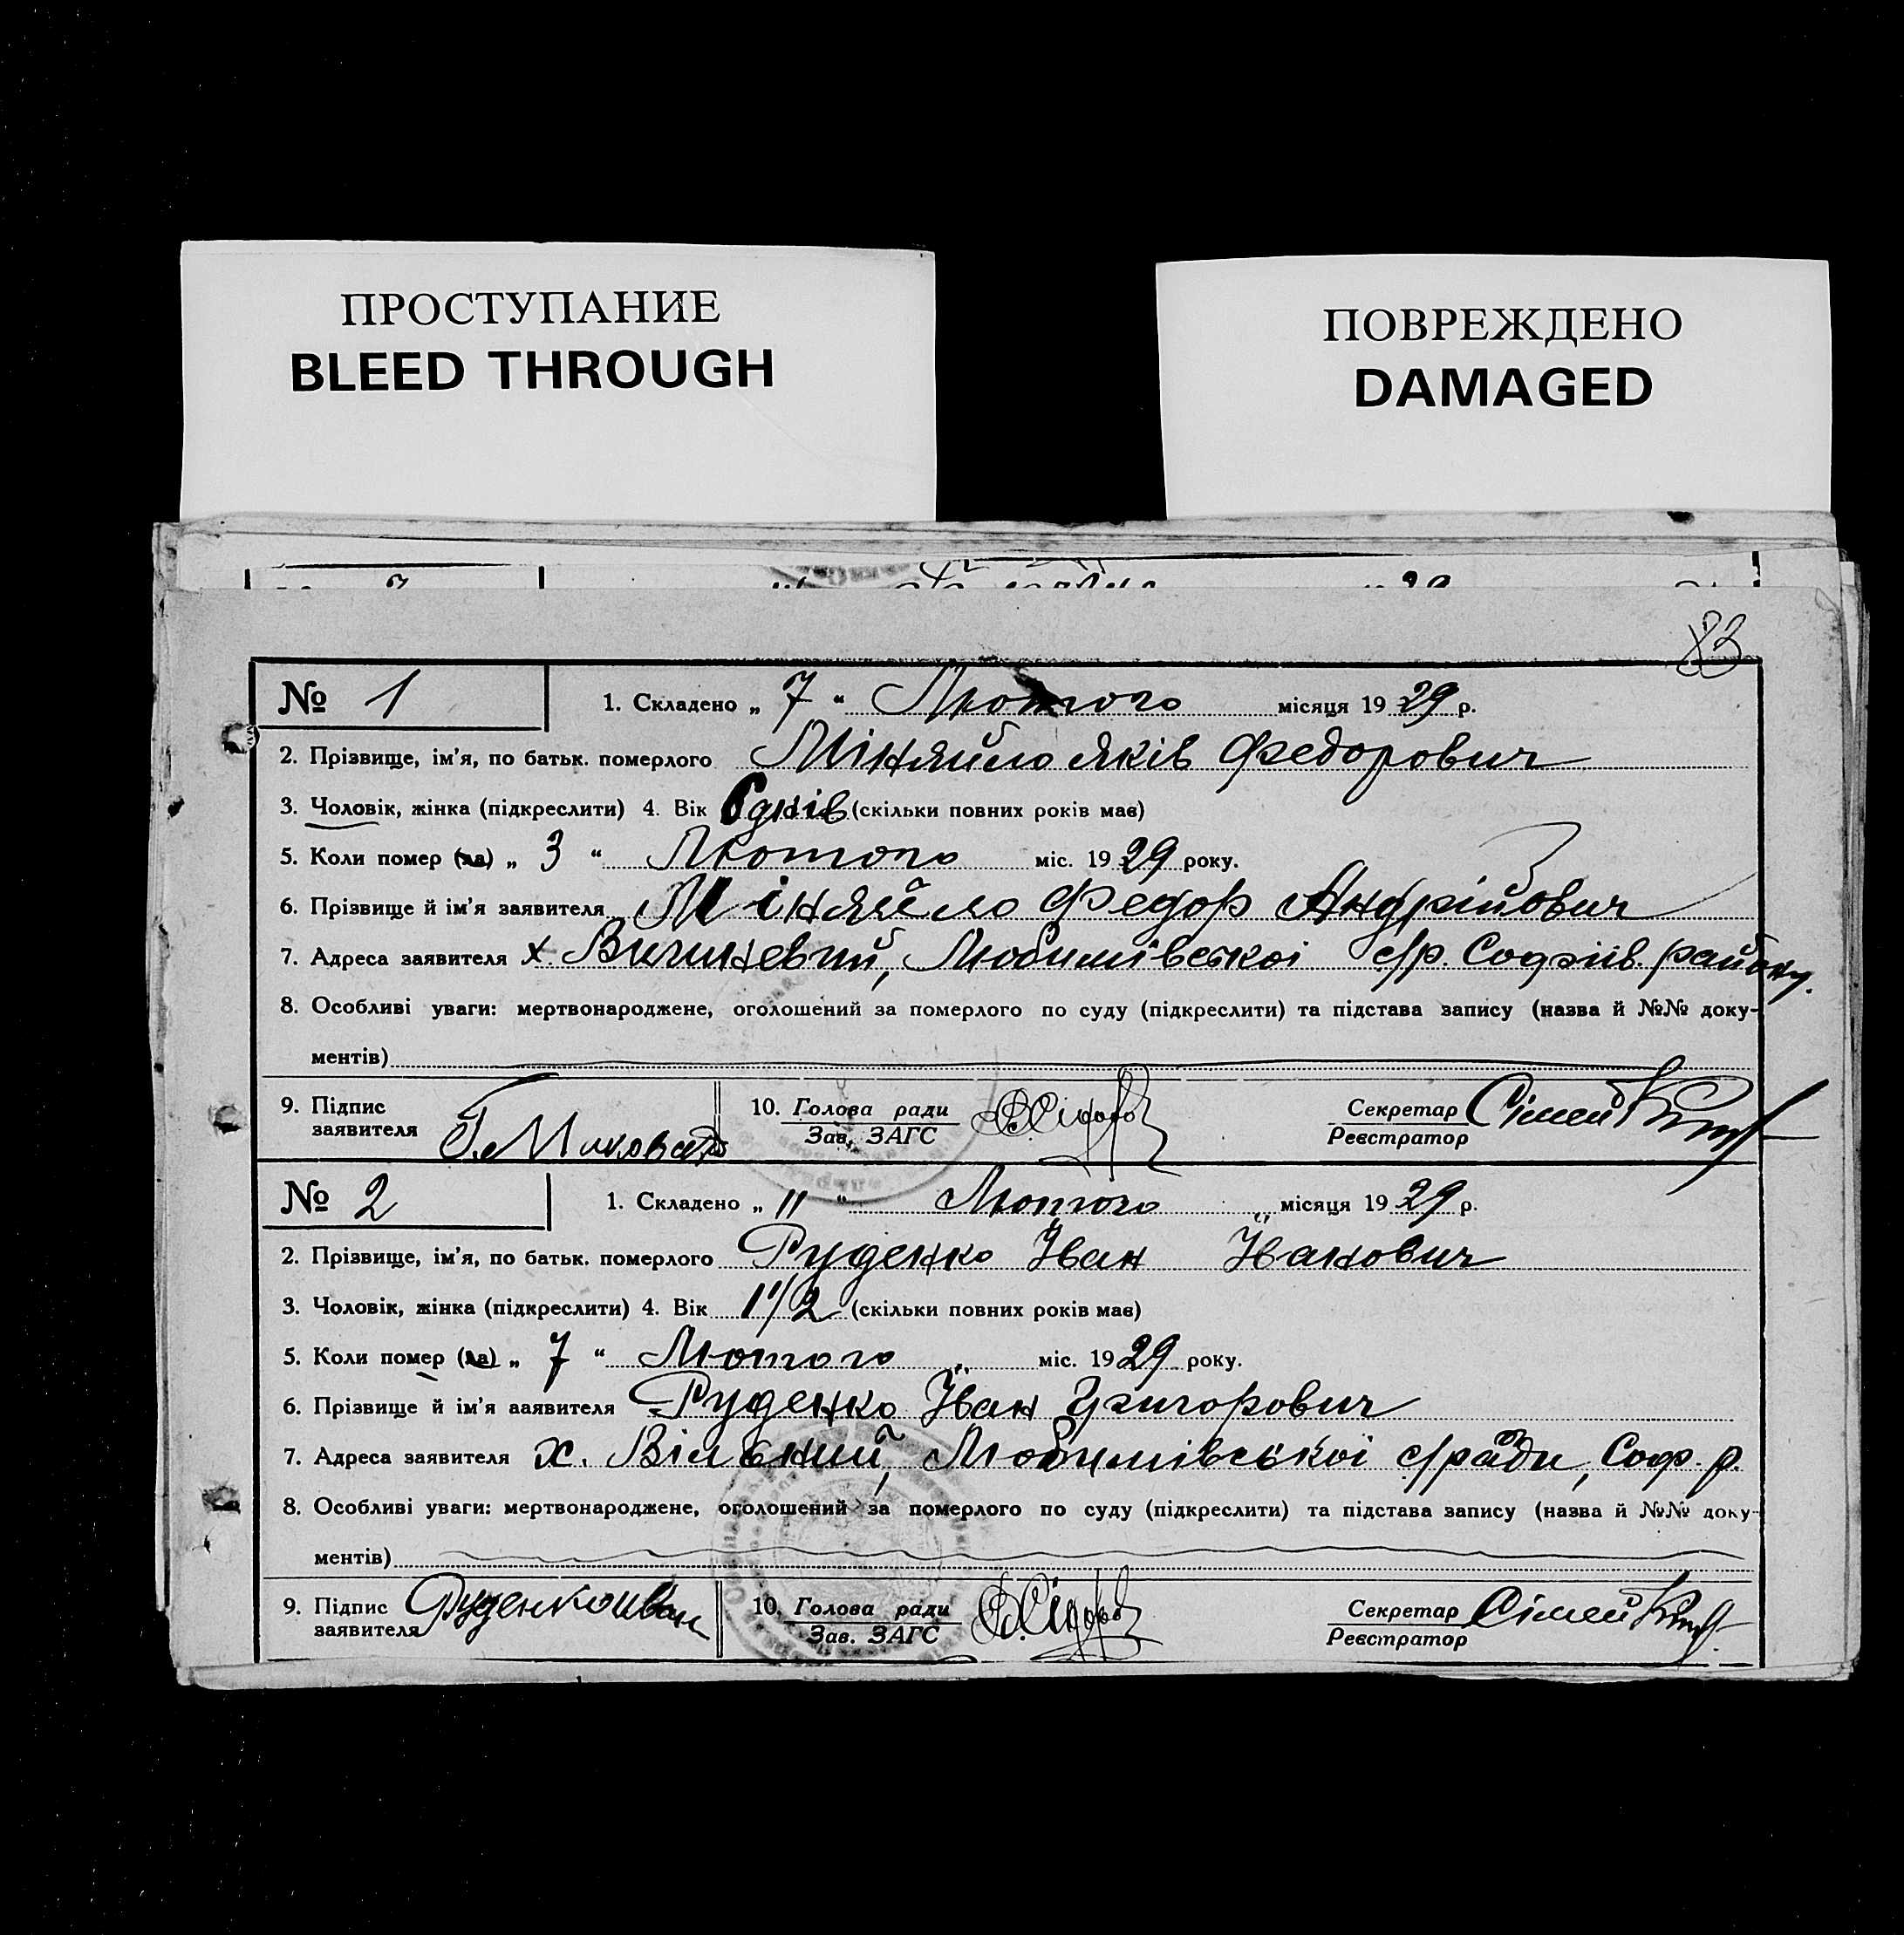 ПРОСТУПАНИЕ
BLEED THROUGH
ПОВРЕЖДЕНО
DAMAGED
83
№ 1 1. Складено „ 7 “ Лютого місяця 1929 р.
2. Прізвище, ім'я, по батьк. померлого Міняйло Яків Федорович
3. Чоловік, жінка (підкреслити) 4. Вік 6 днів (скільки повних років має)
5. Коли помер (ла) „ 3 “ Лютого міс. 1929 року.
6. Прізвище й ім'я заявителя Міняйло Федор Андрійович
7. Адреса заявителя х. Вишневий, Любимівської с/р. Софіїв. району.
8. Особливі уваги: мертвонароджене, оголошений за померлого по суду (підкреслити) та підстава запису (назва й №№ доку-
ментів)
9. Підпис заявителя 10. Голова ради Зав. ЗАГС Секретар Реєстратор
№ 2 1. Складено „ 11 “ Лютого місяця 1929 р.
2. Прізвище, ім'я, по батьк. померлого Руденко Їван Їванович
3. Чоловік, жінка (підкреслити) 4. Вік 1 1/2 (скільки повних років має)
5. Коли помер (ла) „ 7 “ Лютого міс. 1929 року.
6. Прізвище й ім'я заявителя Руденко Їван Григорович
7. Адреса заявителя х. Вільний, Любимівської с/ради, Соф. р.
8. Особливі уваги: мертвонароджене, оголошений за померлого по суду (підкреслити) та підстава запису (назва й №№ доку-
ментів)
9. Підпис заявителя Руденко Иван 10. Голова ради Зав. ЗАГС Секретар Реєстратор